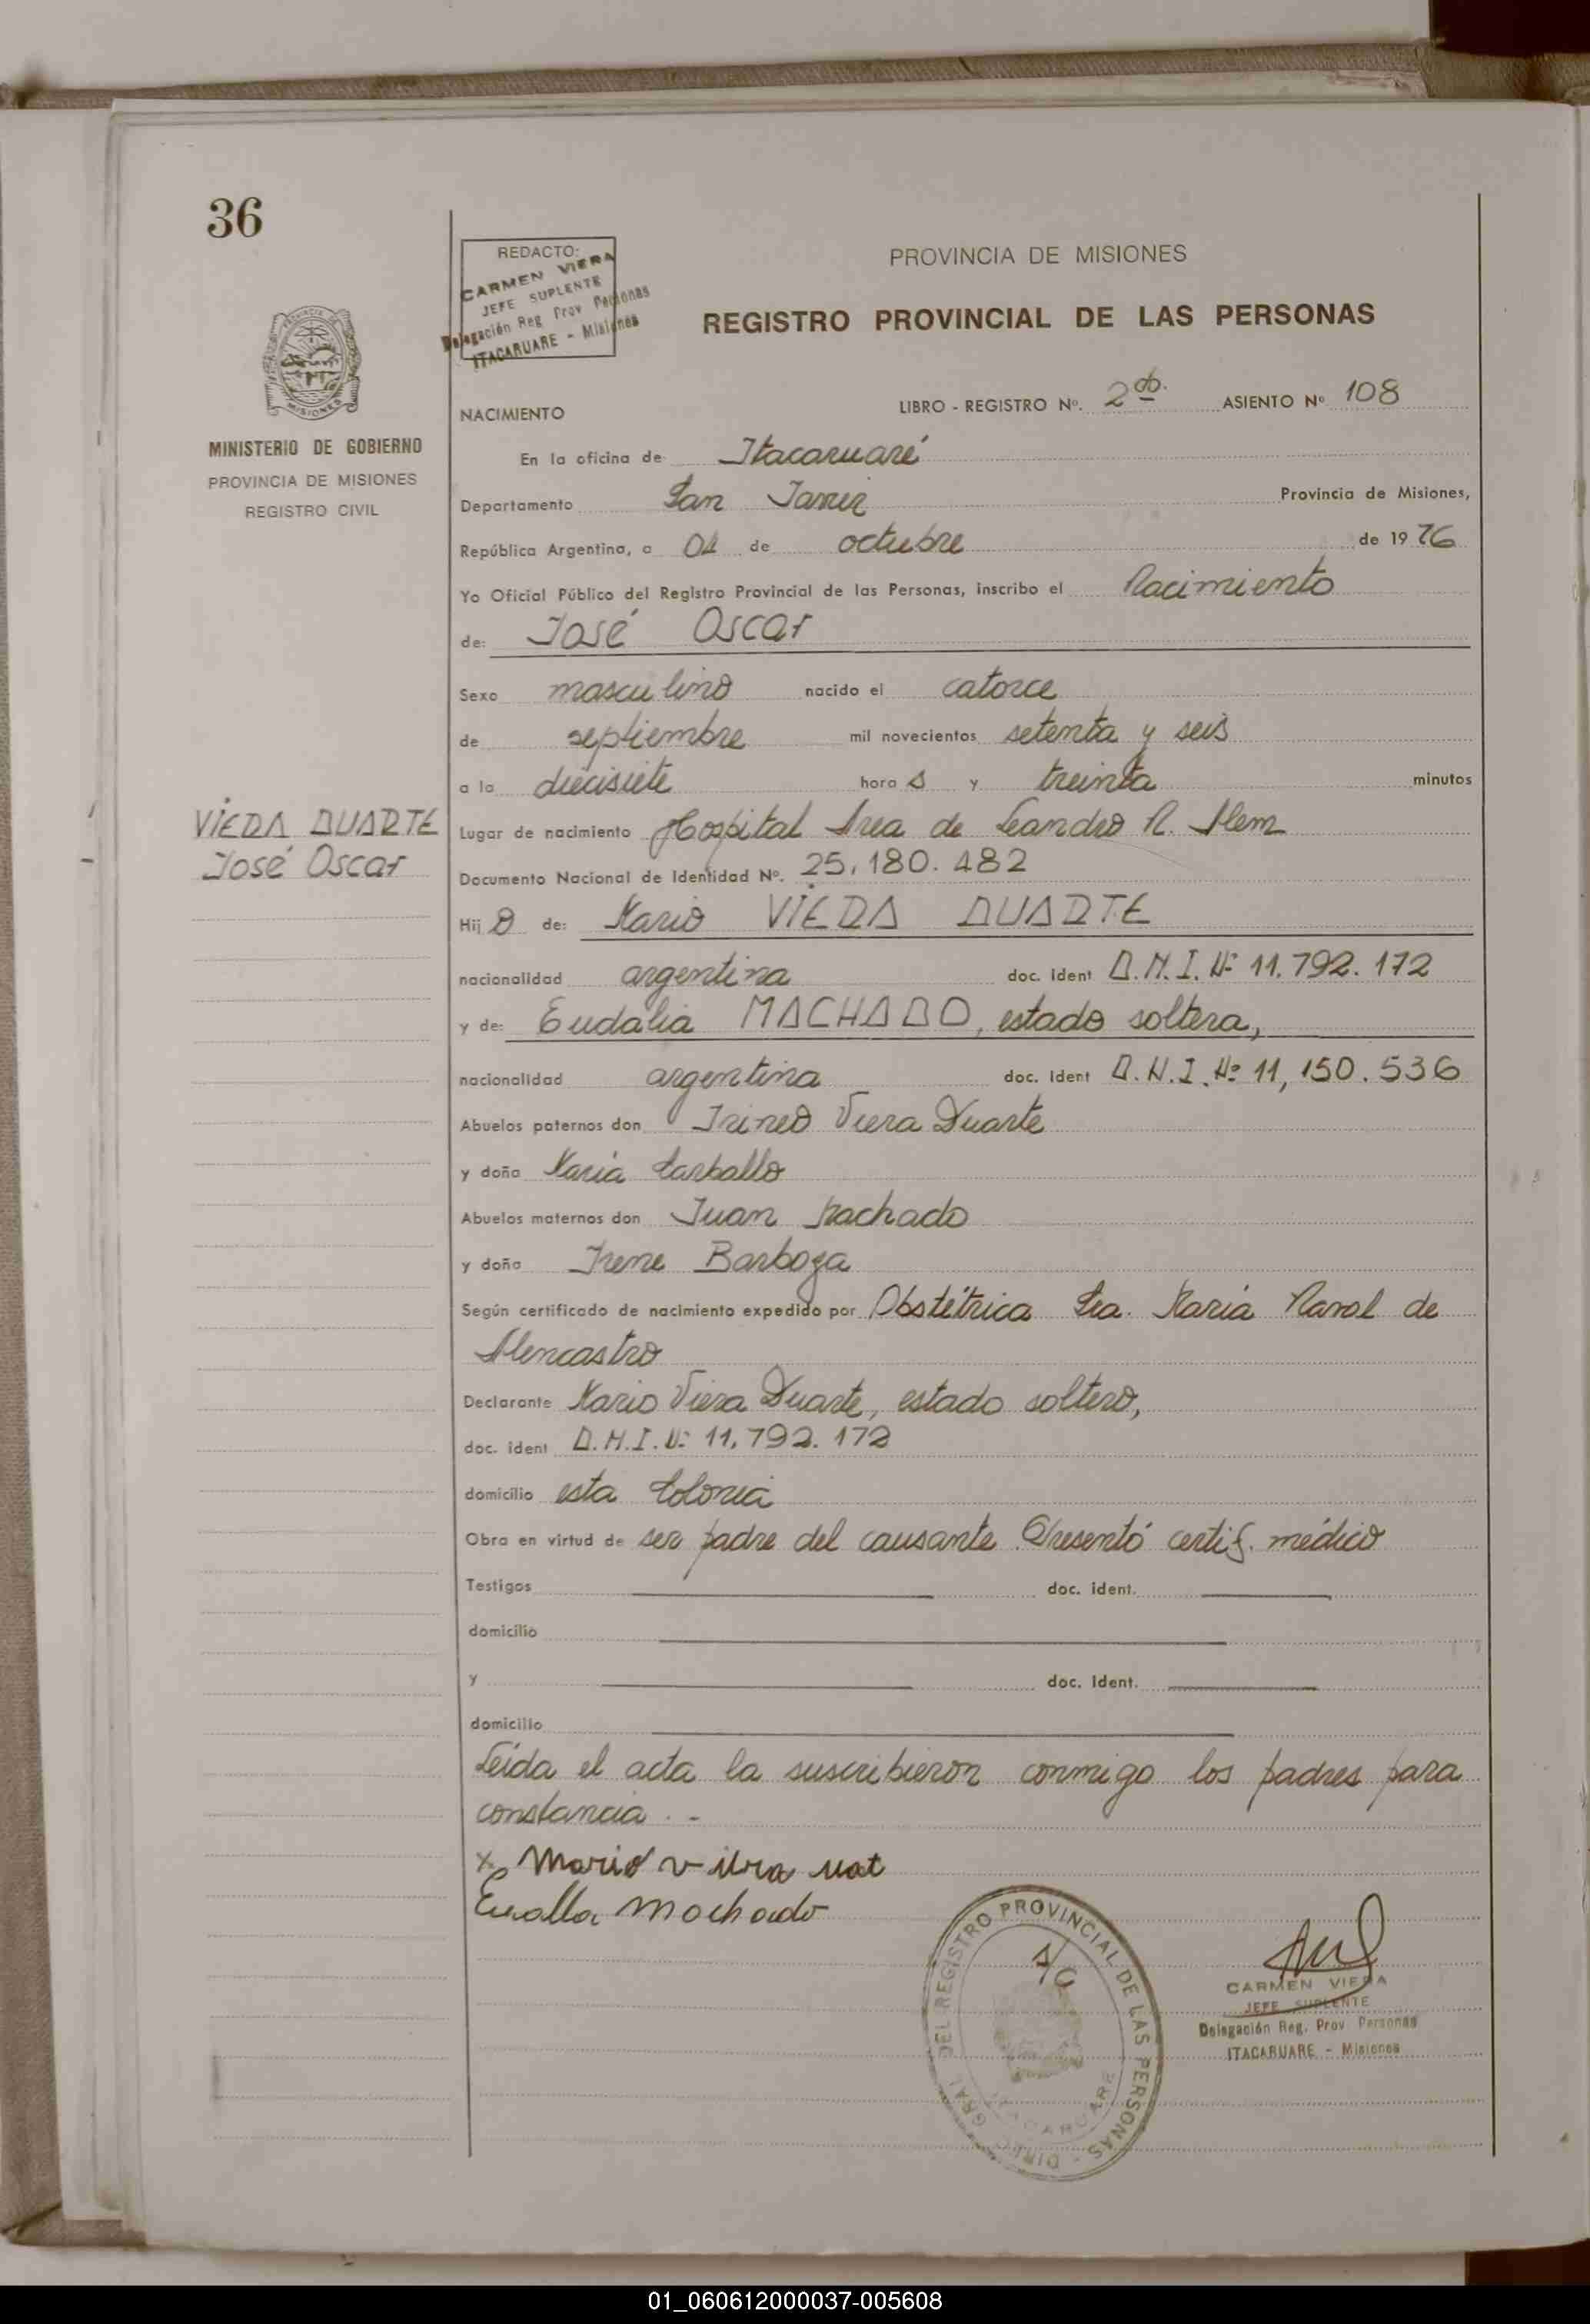 36
REDACTO:
CARMEN VIERA
JEFE SUPLENTE
Delegación Reg Prov Personas
ITACARUARE - Misiones
PROVINCIA DE MISIONES
REGISTRO PROVINCIAL DE LAS PERSONAS
MINISTERIO DE GOBIERNO
PROVINCIA DE MISIONES
REGISTRO CIVIL
NACIMIENTO LIBRO - REGISTRO Nº. 2do. ASIENTO Nº 108
En la oficina de Itacaruaré
Departamento San Javier Provincia de Misiones,
República Argentina, a 04 de octubre de 1976
Yo Oficial Público del Registro Provincial de las Personas, inscribo el Nacimiento
de: José Oscar
Sexo masculino nacido el catorce
de septiembre mil novecientos setenta y seis
a la diecisiete hora s y treinta minutos
VIERA DUARTE
José Oscar
Lugar de nacimiento Hospital Area de Leandro N. Alem
Documento Nacional de Identidad Nº. 25.180.482
Hij o de: Mario VIERA DUARTE
nacionalidad argentina doc. ident D.N.I. Nº 11.792.172
y de: Eudalia MACHADO, estado soltera,
nacionalidad argentina doc. ident D.N.I. Nº 11,150.536
Abuelos paternos don Irineo Viera Duarte
y doña María Carballo
Abuelos maternos don Juan Machado
y doña Irene Barboza
Según certificado de nacimiento expedido por Obstétrica Sra. María Narol de
Alencastro
Declarante Mario Viera Duarte, estado soltero,
doc. ident D.N.I. Nº 11.792.172
domicilio esta Colonia
Obra en virtud de ser padre del causante. Presentó certif. médico
Testigos doc. ident.
domicilio
y doc. ident.
domicilio
Leída el acta la suscribieron conmigo los padres para
constancia. -
x Mario viera
Machado
DIREC. GRAL. DEL REGISTRO PROVINCIAL DE LAS PERSONAS
ITACARUARE
A/C
CARMEN VIERA
JEFE SUPLENTE
Delegación Reg. Prov Personas
ITACARUARE - Misiones
01_060612000037-005608